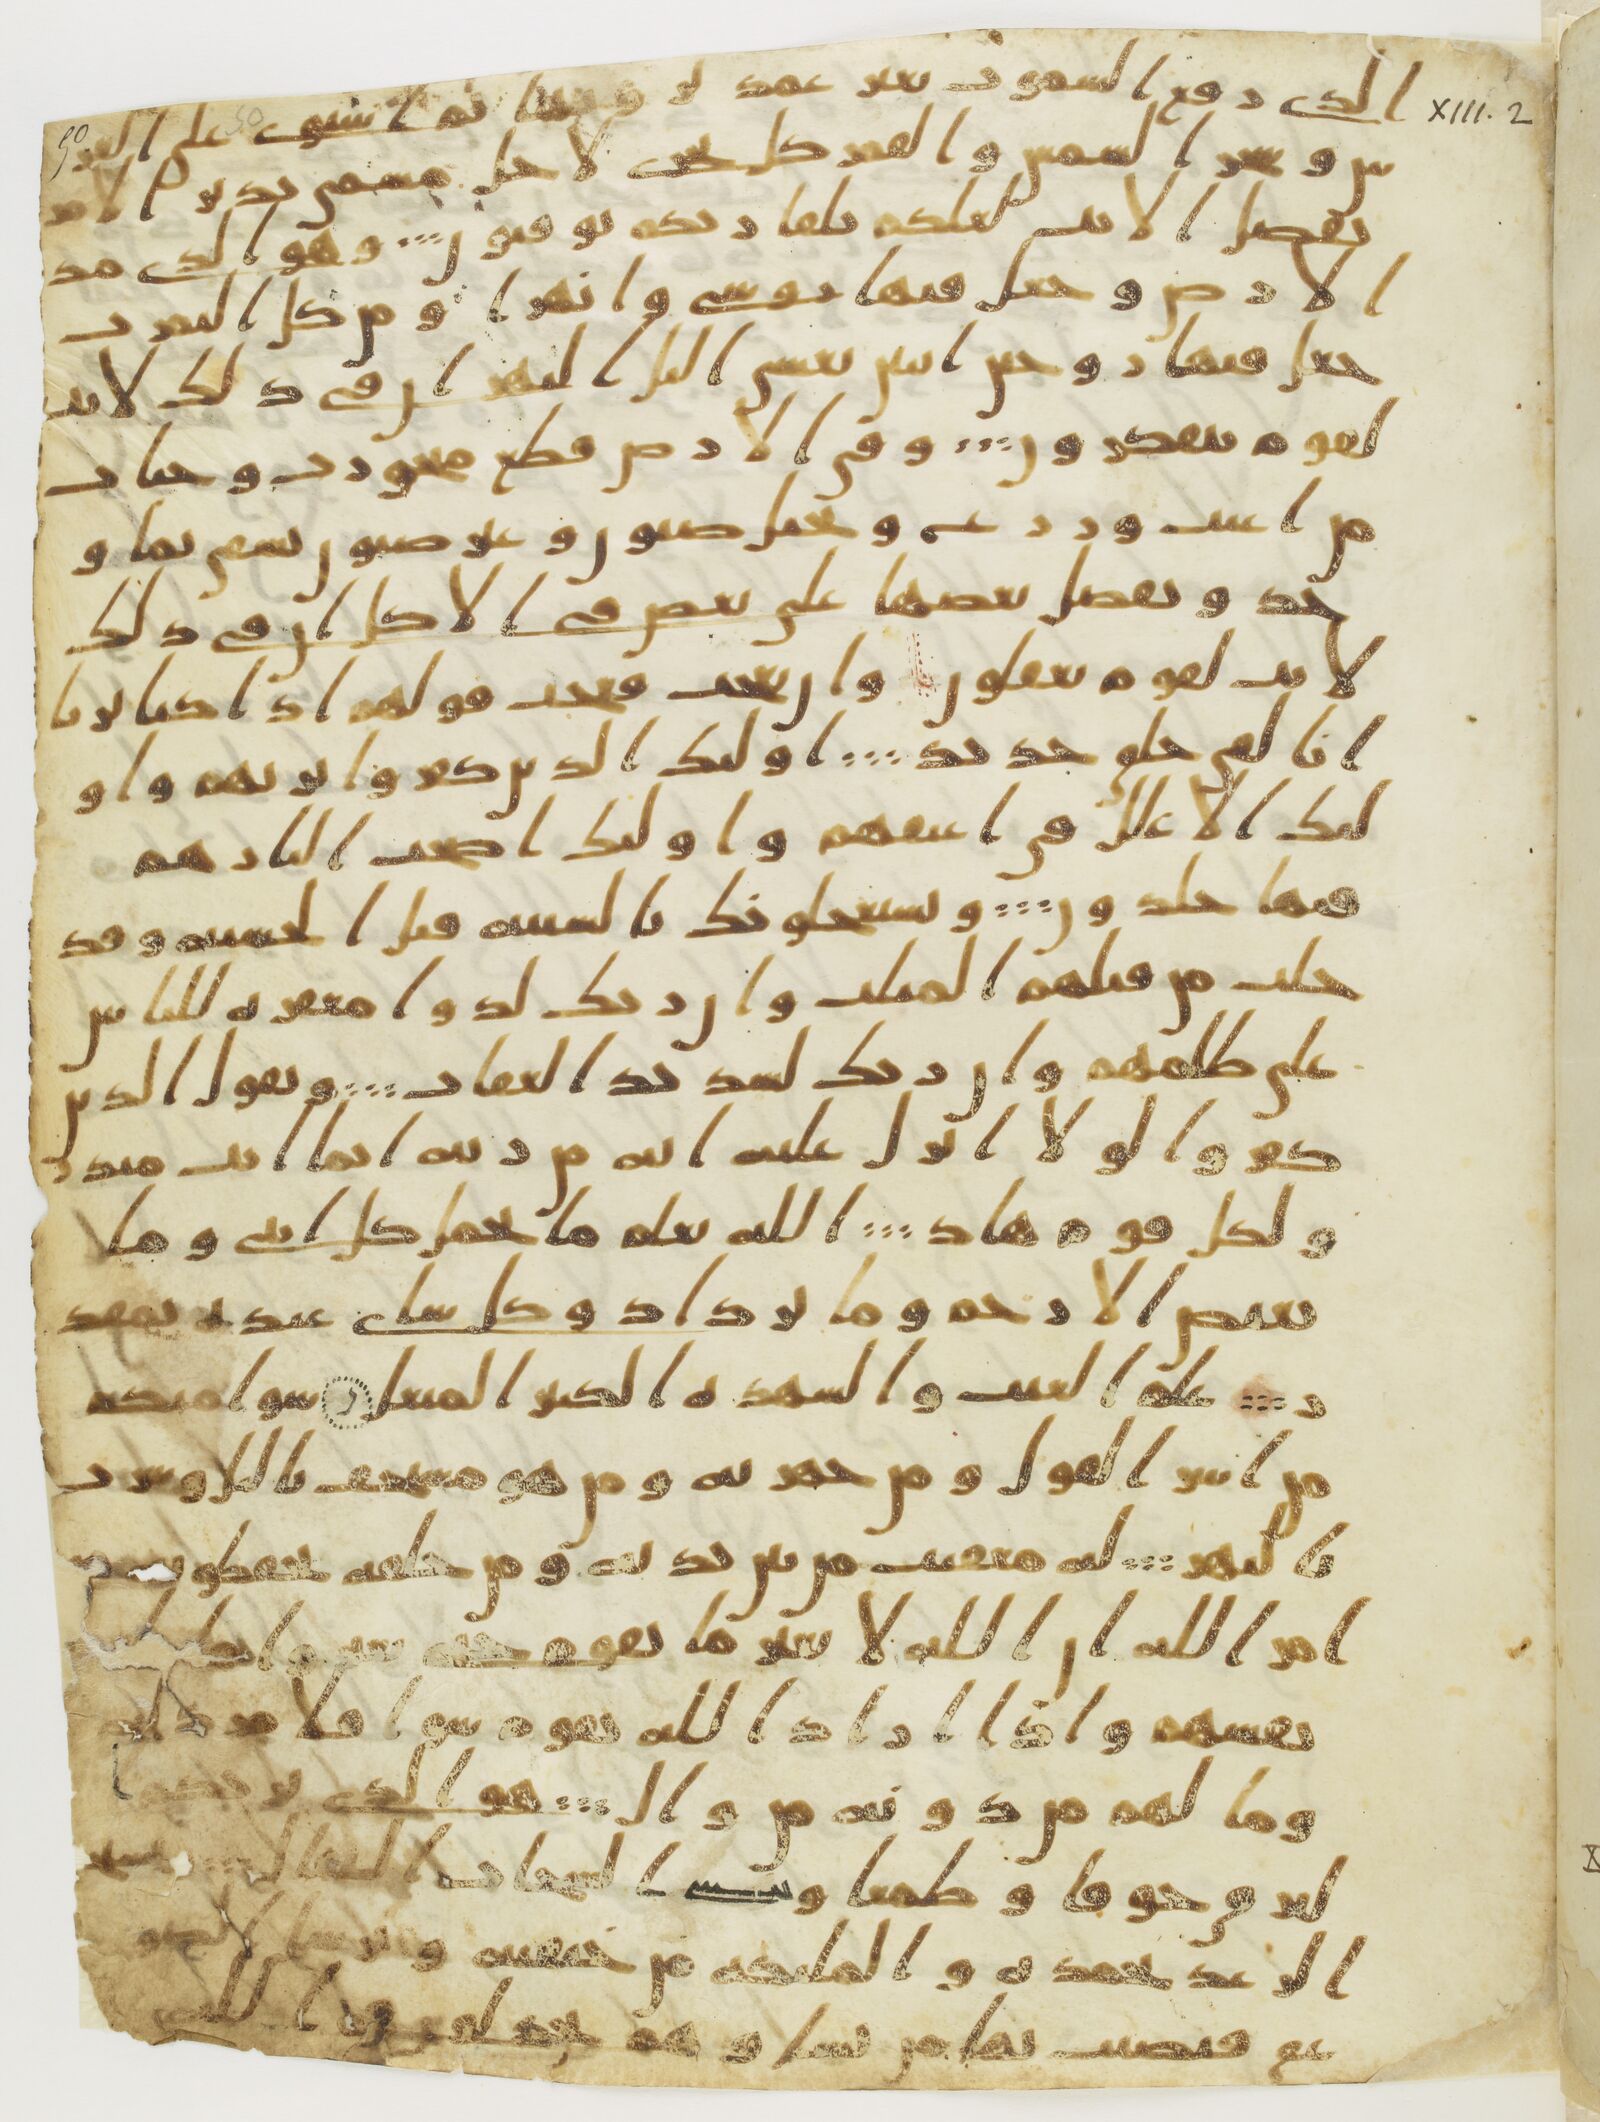 XIII. 2
50
الذى رفع السموت بغير عمد ترونها ثم استوى على العر
ش وسخر الشمس والقمر كل يجرى لاجل مسمى يدبر الامر
يفصل الايت لعلكم بلقا ربكم توقنون وهو الذى مد
الارض وجعل فيها روسى وانهرا ومن كل الثمرت
جعل فيها زوجين اثنين يغشى اليل النهر ان فى ذلك لايت
لقوم يتفكرون وفى الارض قطع متجورت وجنات
من اعنب وزرع ونخيل صنون وغير صنون يسقى بما و
حد ونفضل بعضها على بعض فى الاكل ان فى ذلك
لايت لقوم يعقلون وان تعجب فعجب قولهم اذا كنا تربا
انا لفى خلق جديد اوليك الذين كفروا بربهم واو
ليك الاغلل فى اعنقهم واوليك اصحب النار هم
فيها خلدون ويستعجلونك بالسيئه قبل الحسنه وقد
خلت من قبلهم المثلت وان ربك لذوا مغفره للناس
على ظلمهم وان ربك لشديد العقاب ويقول الذين
كفروا لولا انزل عليه ايه من ربه انما انت منذر
ولكل قوم هاد الله يعلم ما تحمل كل انثى وما
تغيض الارحم وما تزداد وكل شاى عنده بمقد
ر علم الغيب والشهده الكبير المتعل سوا منكم
من اسر القول ومن جهر به ومن هو مستخف باليل وسرب
بالنهر له معقبت من بين يديه ومن خلفه يحفظونه من
امر الله ان الله لا يغير ما بقوم حتى يغيروا ما با
نفسهم واذا اراد الله بقوم سوا فلا مرد له
وما لهم من دونه من وال هو الذى يريكم ا
لبرق خوفا وطمعا وينشى السحاب الثقال
الرعد بحمده والمليكه من خيفته ويرسل الصو
عق فيصيب بها من يشا وهم يجدلون فى الله